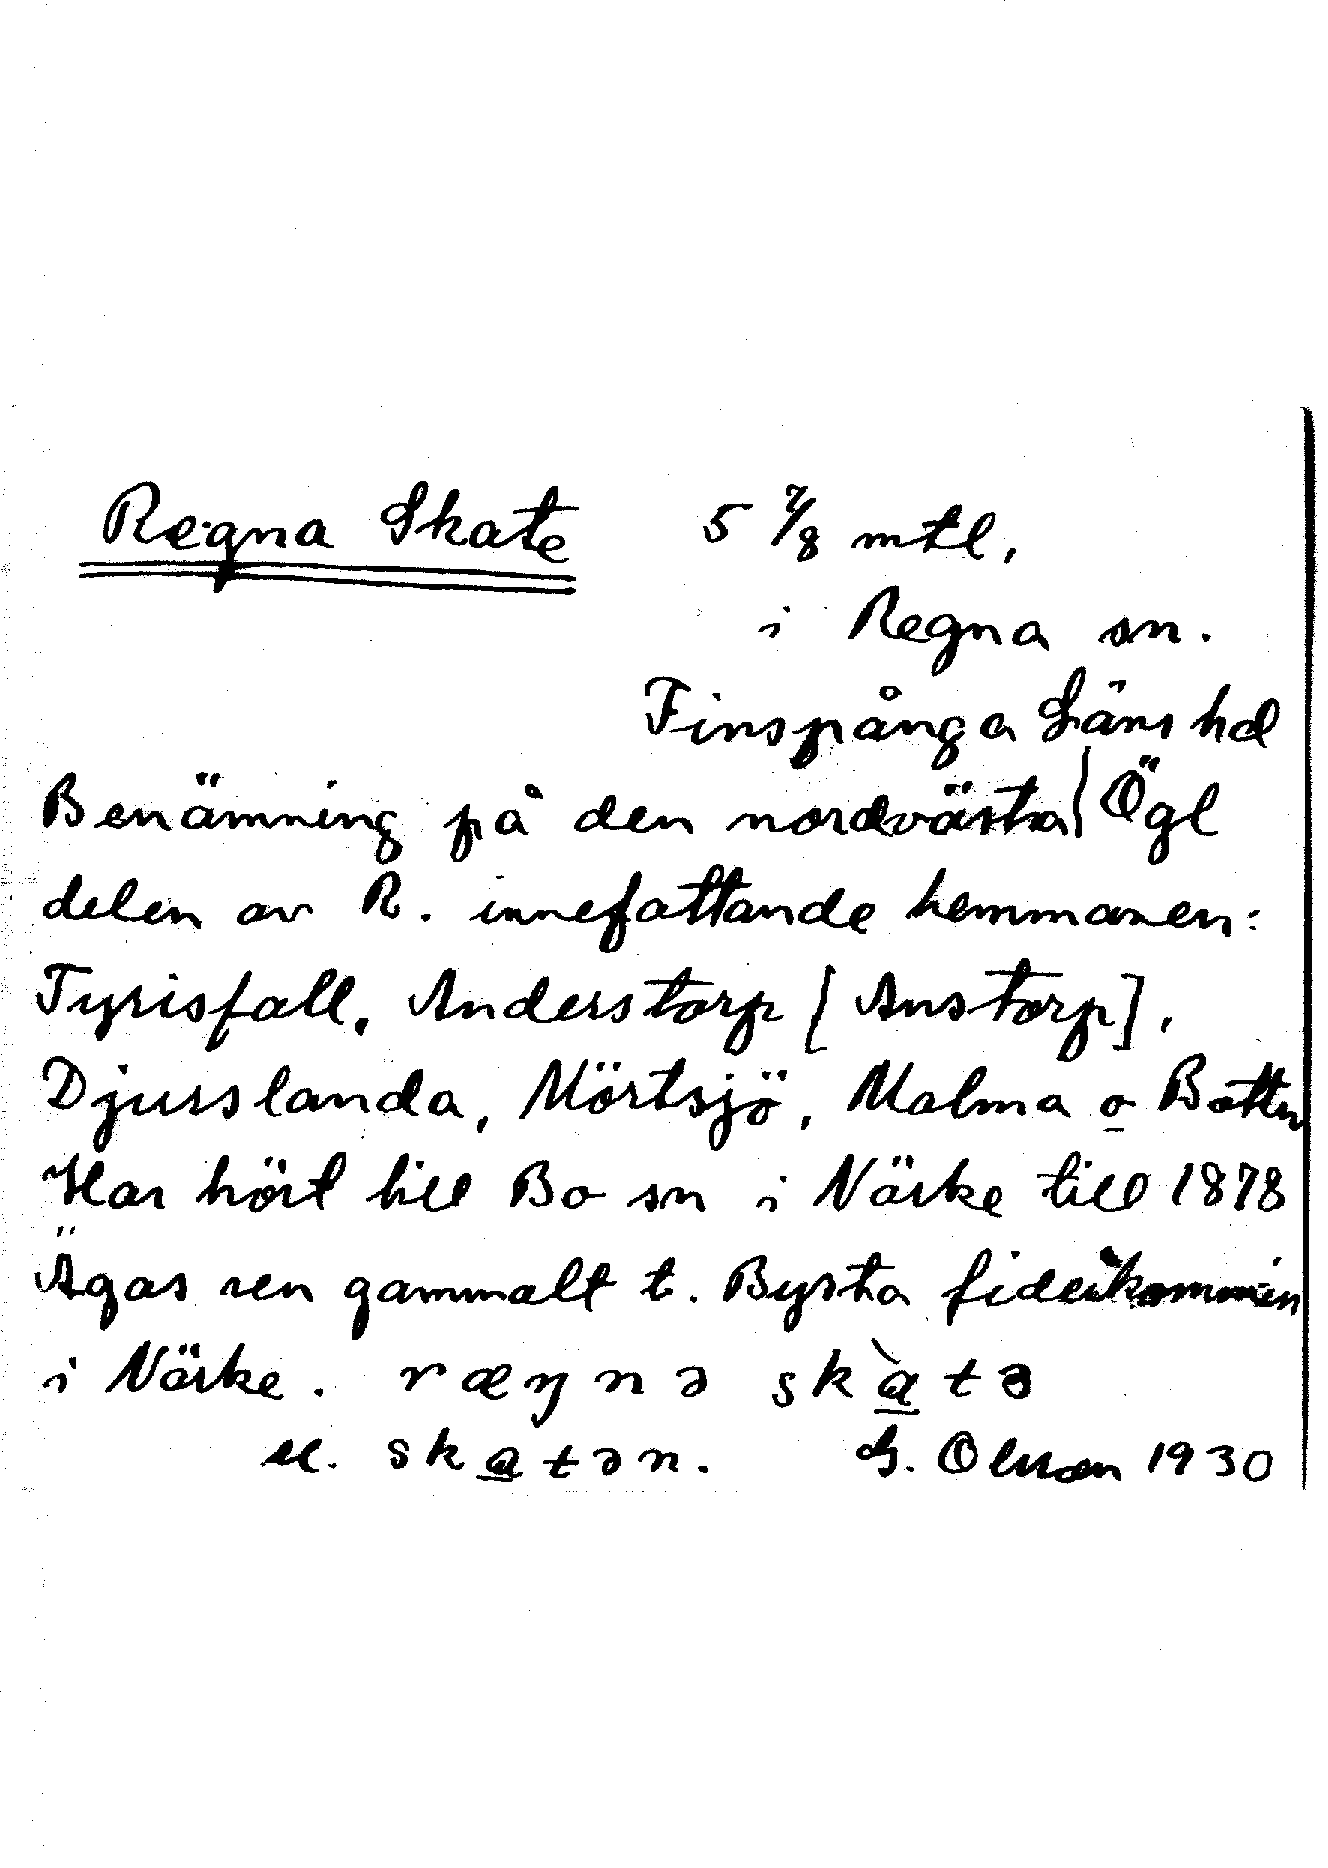 Regna Skate 5 7/8 mtl,
i Regna sn.
Finspånga Läns hd
Benämning på den nordvästra Ögl
delen av R. innefattande hemmanen:
Tyrisfall, Anderstorp [Anstorp],
Djursslanda, Mörtsjö, Malma o Botten
Har hört till Bo sn i Närke till 1878
Ägas sen gammalt t. Bysta fideikommin
i Närke. ræŋnə skàtə
el. skatən. G. Olsson 1930